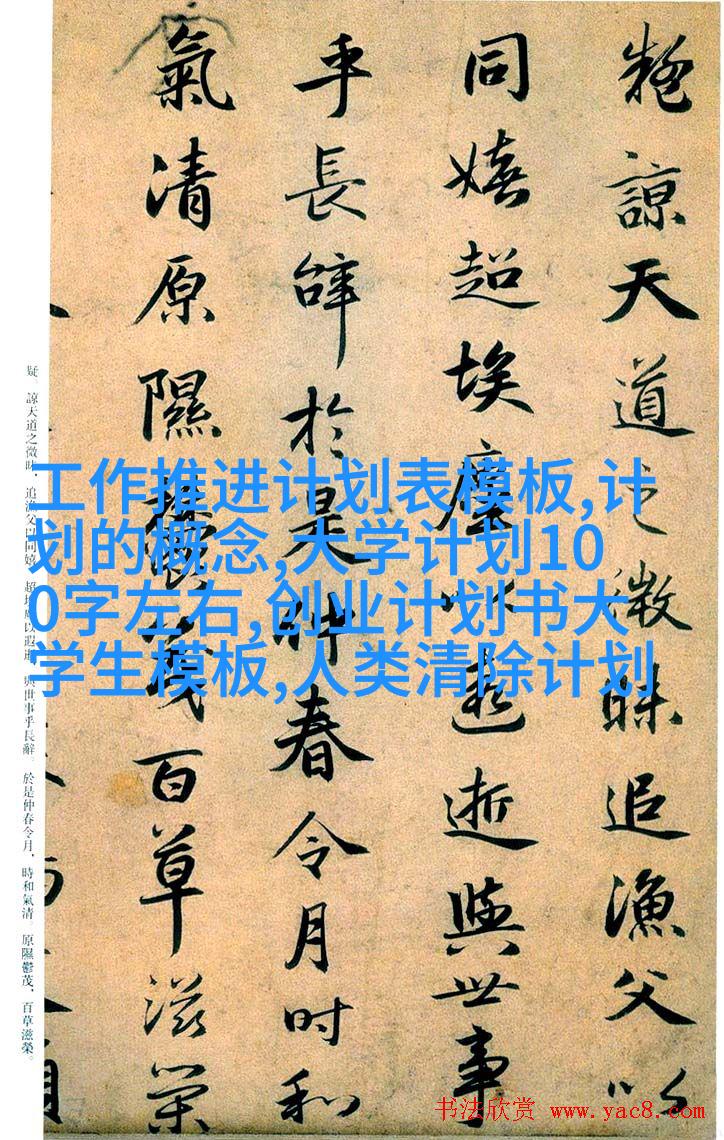 疑諒天道之微昧追漁父以
同嬉超埃塵以遐逝與世事
乎長辭於是仲春令月時和
氣清原隰鬱茂百草滋榮
疑。諒天道之微昧，追漁父以同嬉。超埃塵以遐逝，與世事乎長辭。於是仲春令月，時和氣清。原隰鬱茂，百草滋榮。
工作推进计划表模板,计
划的概念,大学计划10
0字左右,创业计划书大
学生模板,人类清除计划
书法欣赏 www.yac8.com